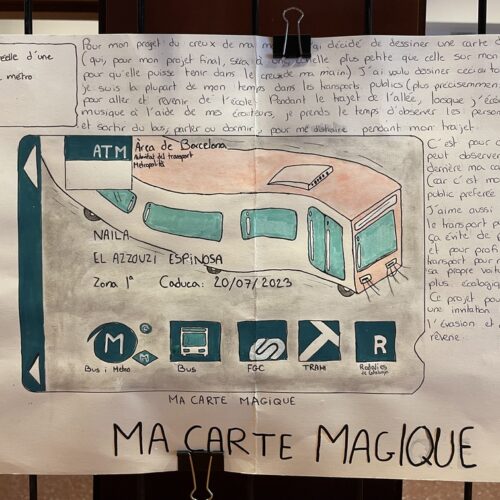 d'une
métro
Pour mon projet du creux de ma m ai décidé de dessiner une carte d
(qui, pour mon projet final, sera à une échelle plus petite que celle sur mon
pour qu'elle puisse tenir dans le creux de ma main) J'ai voulu dessiner ceci car to
je suis la plupart de mon temps dans les transports publics (plus précisemmen
pour aller et revenir de l'école. Pendant le trajet de l'allée, lorsque j'éc
musique à l'aide de mes écouteurs, je prends le temps d'observer les person
et sortir du bus, parler ou dormir, pour me distraire pendant mon trajet.
C'est pour c
peut observer
derrière ma ca
(car c'est mo
public préféré
J'aime aussi
le transport pu
ça évite de p
et pour profi
transport pour
sa propre voitu
plus écologiqu
Ce projet pou
une invitation
l'évasion et
rêverie.
ATM
Àrea de Barcelona
Autoritat del transport
Metropolità
NAILA
EL AZZOUZI ESPINOSA
Zona 1ª Caduca: 20/07/2023
M
M
R
Bus i Metro
Bus
FGC
TRAM
Rodalies
de Catalunya
MA CARTE MAGIQUE
MA CARTE MAGIQUE